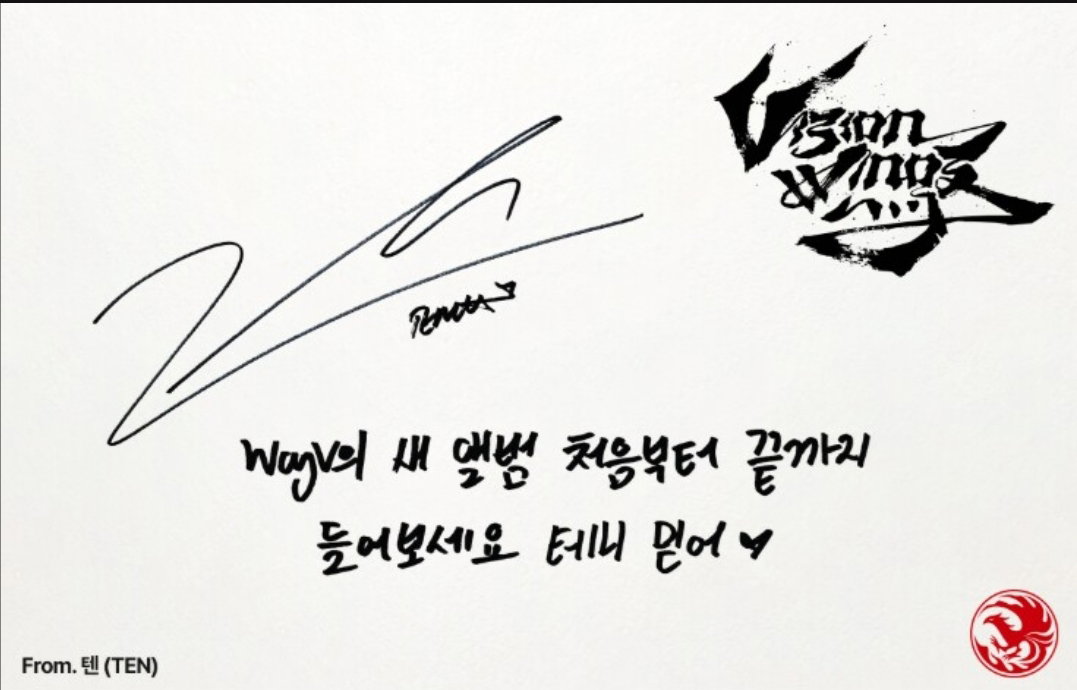 Vision
Wings
WayV의 새 앨범 처음부터 끝까지
들어보세요 테니 믿어 ♥
From. 텐 (TEN)